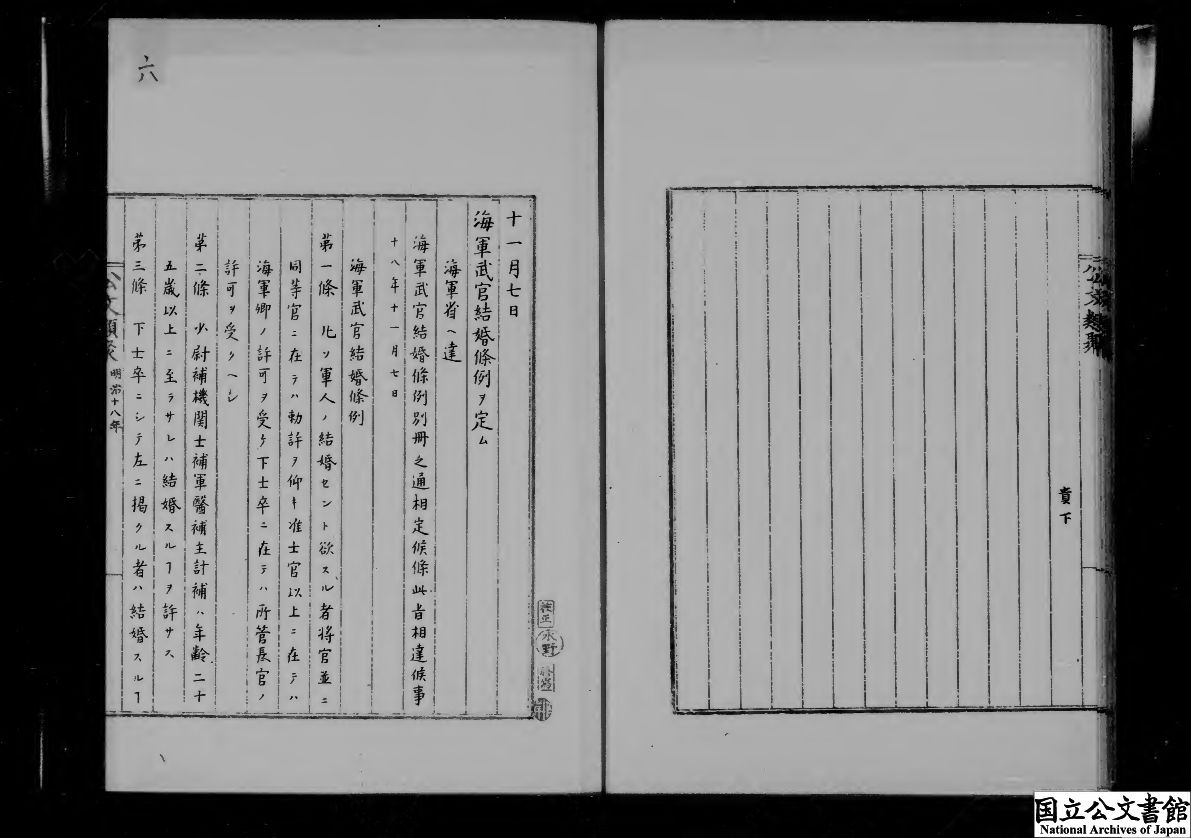 公文類聚
貴下
六
十一月七日
海軍武官結婚條例ヲ定ム
海軍省ヘ達
海軍武官結婚條例別冊之通相定候條此旨相達候事
十八年十一月七日
海軍武官結婚條例
第一條 凡ソ軍人ノ結婚セント欲スル者將官並ニ
同等官ニ在テハ勅許ヲ仰キ准士官以上ニ在テハ
海軍卿ノ許可ヲ受ケ下士卒ニ在テハ所管長官ノ
許可ヲ受クヘシ
第二條 少尉補機関士補軍醫補主計補ハ年齢二十
五歳以上ニ至ラサレハ結婚スルヿヲ許サス
第三條 下士卒ニシテ左ニ掲クル者ハ結婚スルヿ
公文類聚 明治十八年
校正
永野
国立公文書館
National Archives of Japan